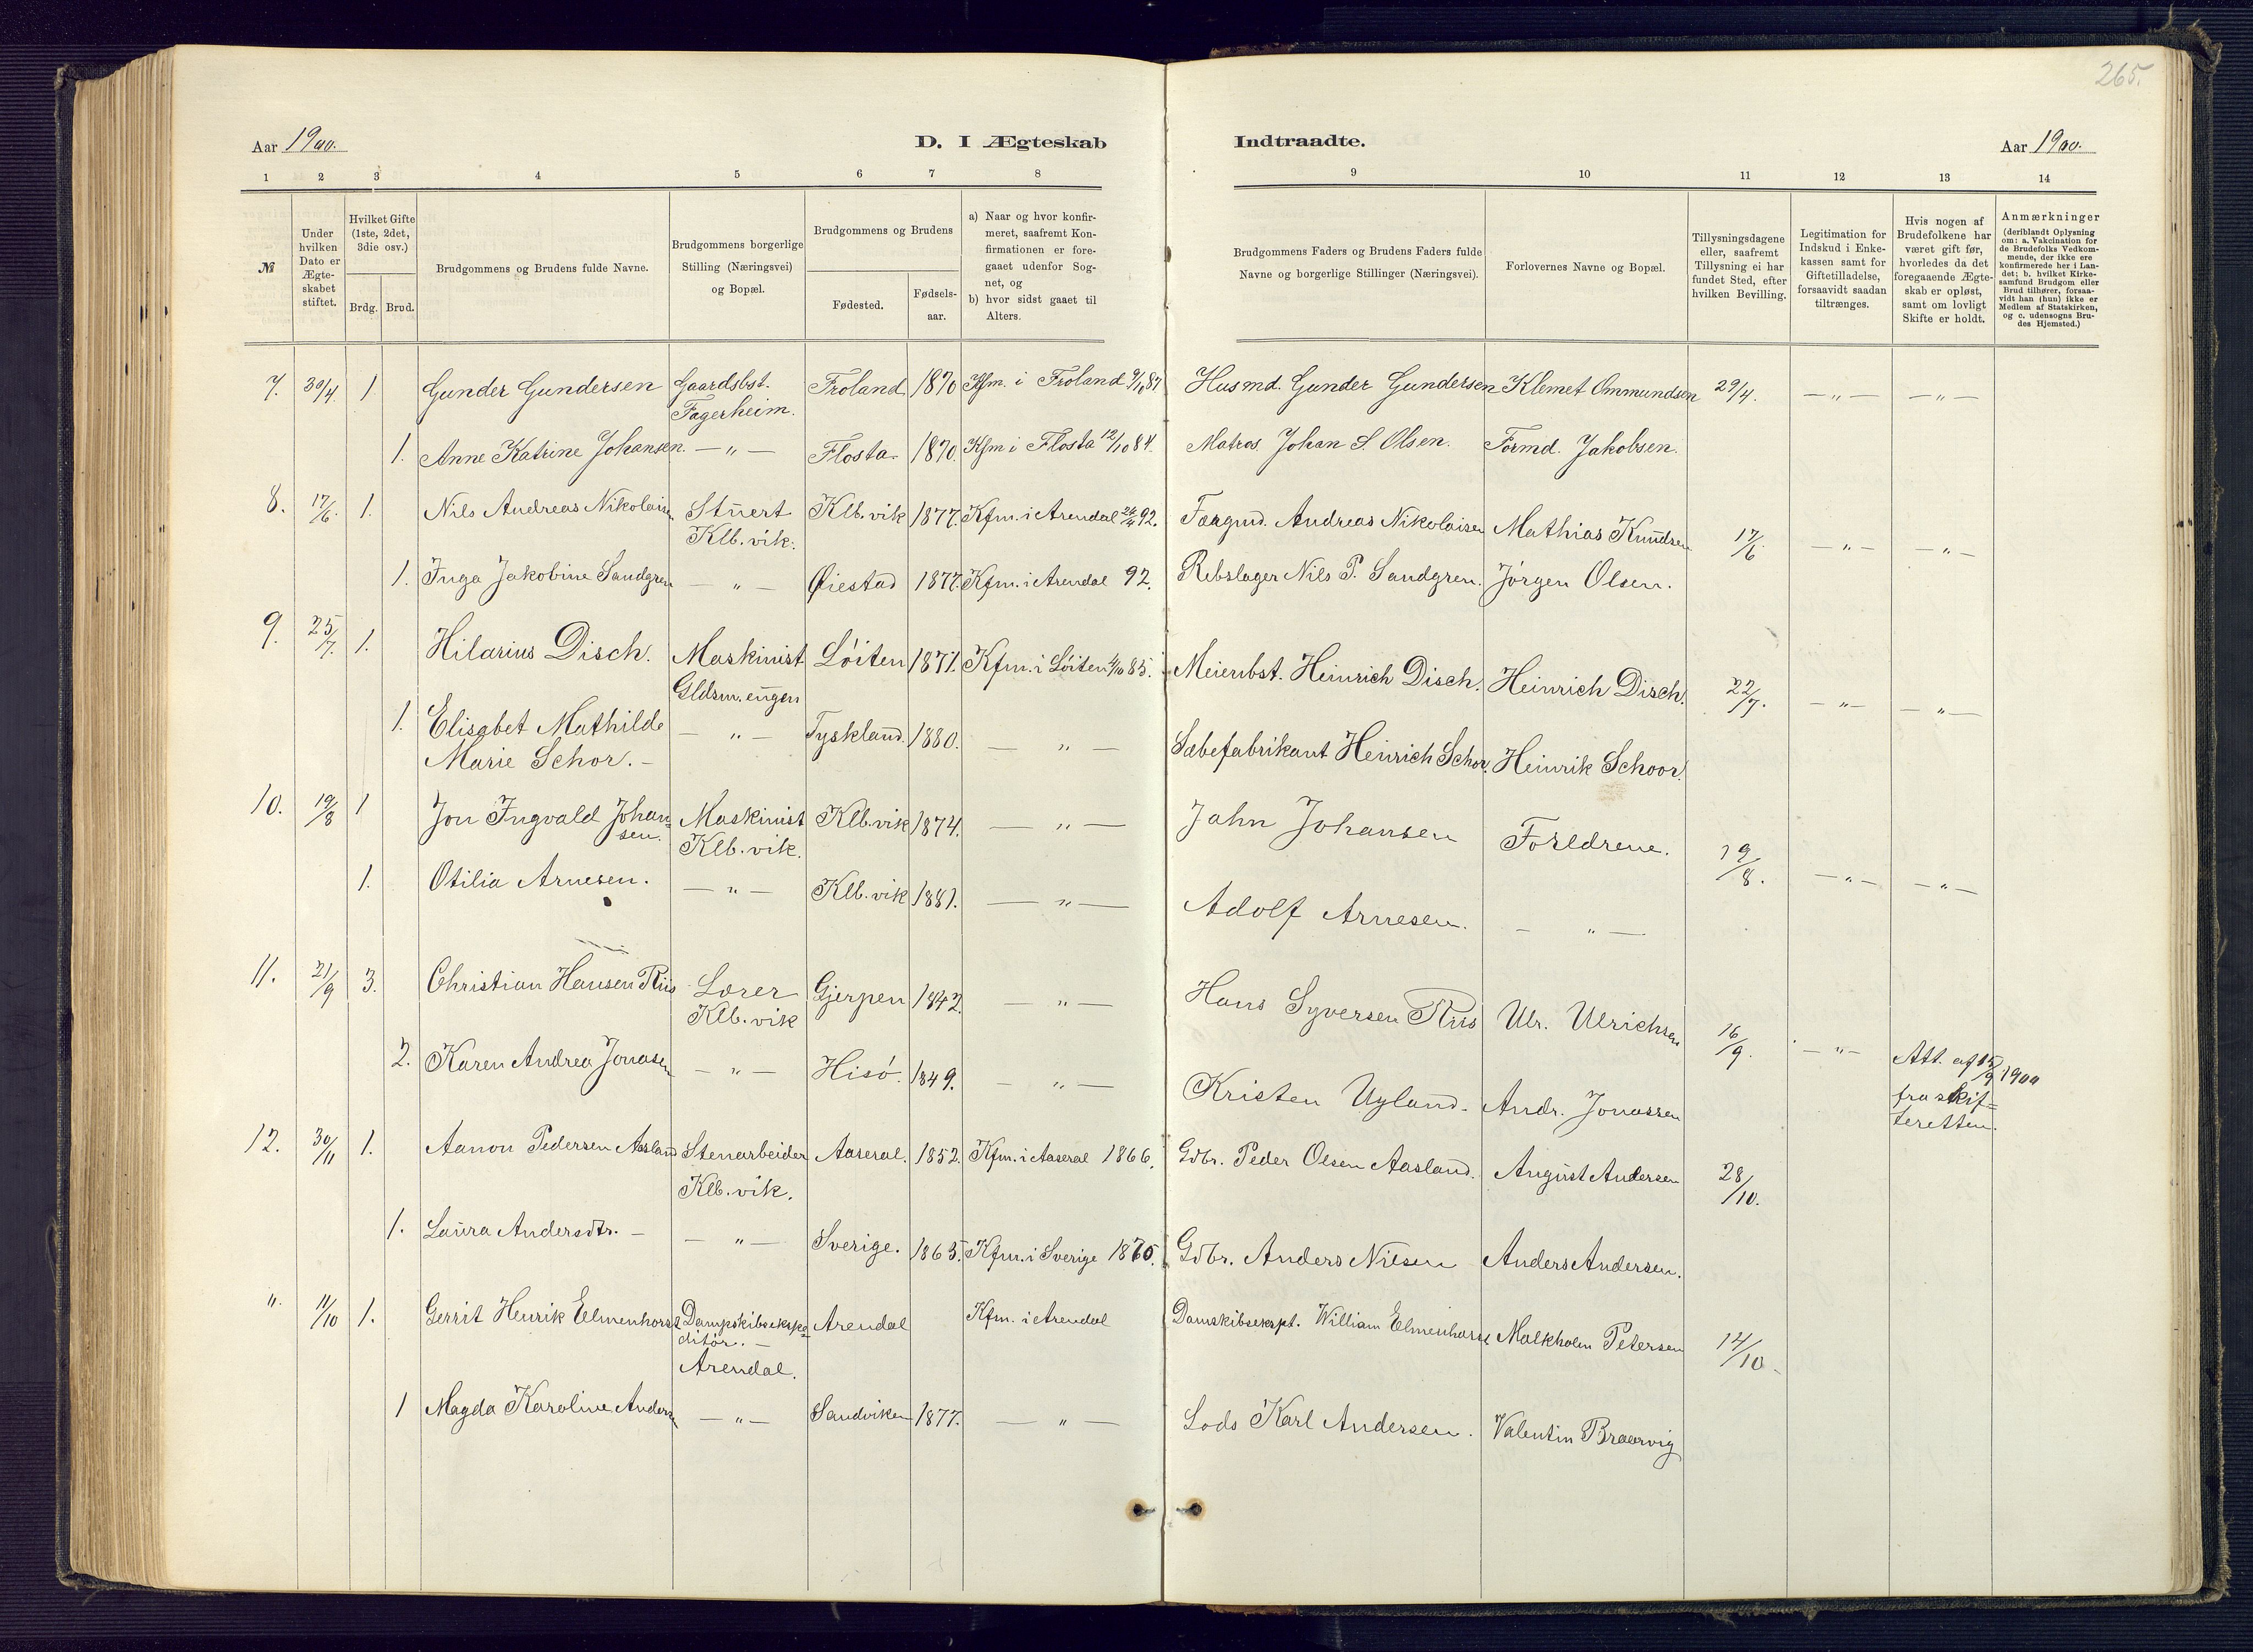 265.
Aar 1900.
D. I Ægteskab
Indtraadte.
Aar 1900.
1 2 3 4 5 6 7 8
9 10 11 12 13 14
№
Under
hvilken
Dato er
Ægte-
skabet
stiftet.
Hvilket Gifte
(1ste, 2det,
3die osv.)
Brdg. Brud.
Brudgommens og Brudens fulde Navne.
Brudgommens borgerlige
Stilling (Næringsvei)
og Bopæl.
Brudgommens og Brudens
Fødested.
Fødsels-
aar.
a) Naar og hvor konfir-
meret, saafremt Kon-
firmationen er fore-
gaaet udenfor Sog-
net, og
b) hvor sidst gaaet til
Alters.
Brudgommens Faders og Brudens Faders fulde
Navne og borgerlige Stillinger (Næringsvei).
Forlovernes Navne og Bopæl.
Tillysningsdagene
eller, saafremt
Tillysning ei har
fundet Sted, efter
hvilken Bevilling.
Legitimation for
Indskud i Enke-
kassen samt for
Giftetilladelse,
forsaavidt saadan
tiltrænges.
Hvis nogen af
Brudefolkene har
været gift før,
hvorledes da det
foregaaende Ægte-
skab er opløst,
samt om lovligt
Skifte er holdt.
Anmærkninger
(deriblandt Oplysning
om: a. Vakcination for
de Brudefolks Vedkom-
mende, der ikke ere
konfirmerede her i Lan-
det; b. hvilket Kirke-
samfund Brudgom eller
Brud tilhører, forsaa-
vidt han (hun) ikke er
Medlem af Statskirken,
og c. udensogns Bru-
des Hjemsted.)
7. 30/4 1 Gunder Gundersen Gaardsbst. Froland 1870 Kfm. i Froland 9/10 87 Husmd. Gunder Gundersen Klemet Ommundsen 29/4. — " — — " —
Fagerheim.
1. Anne Katrine Johansen. — " — Flosta. 1870. Kfm i Flosta 12/10 84. Matros Johan S. Olsen. Formd. Jakobsen.
8. 17/6. 1. Nils Andreas Nikolaisen Stuert Klb.vik 1877. Kfm. i Arendal 92. Andreas Nikolaisen Mathias Knudsen 17/6 — " — — " —
Klb.vik.
1. Inga Jakobine Sandgren — " — Øiestad 1877. Kfm. i Arendal 92. Rebslager Nils P. Sandgren. Jørgen Olsen.
9. 25/7. 1. Hilarius Disch. Maskinist Løiten 1871. Kfm. i Løiten 4/10 85. Meieribst. Heinrich Disch. Heinrich Disch. 22/7. — " — — " —
Gldsm.engen
1. Elisabet Mathilde — " — Tyskland. 1880. — " — Sæbefabrikant Heinrich Schor. Heinrik Schoor.
Marie Schor. —
10. 19/8 1 Jon Ingvald Johan- Maskinist Klb.vik 1874. — " — Jahn Johansen Forldrene. 19/8. — " — — " —
sen. Klb.vik.
1. Otilia Arnesen. — " — Klb.vik 1881. — " — Adolf Arnesen. — " —
11. 21/9 3. Christian Hansen Riis Lærer Gjerpen 1842. — " — Hans Syversen Riis Ulr. Ulrichsen 16/9. — " —
Klb.vik
2. Karen Andrea Jonasen — " — Hisø. 1849. — " — Kristen Ugland. Andr. Jonassen Att. af 15/9 1900
fra skif-
teretten.
12. 30/11 1. Aanon Pedersen Aasland Stenarbeider Aaseral. 1852. Kfm. i Aaseral 1866. Gdbr. Peder Olsen Aasland. August Andersen 28/10.
Klb.vik.
1. Laura Andersdtr. — — " — Sverige. 1863. Kfm. i Sverige 1875. Gdbr. Anders Nilsen Anders Andersen.
". 11/10 1. Gerrit Henrik Elmenhorst Dampskibsekspe- Arendal Kfm. i Arendal Damskibsekspt. William Elmenhorst Malkholm Petersen 14/10
ditør. —
Arendal.
1 Magda Karoline Andersen — " — Sandviken 1877. — " — Lods Karl Andersen. Valentin Braarvig